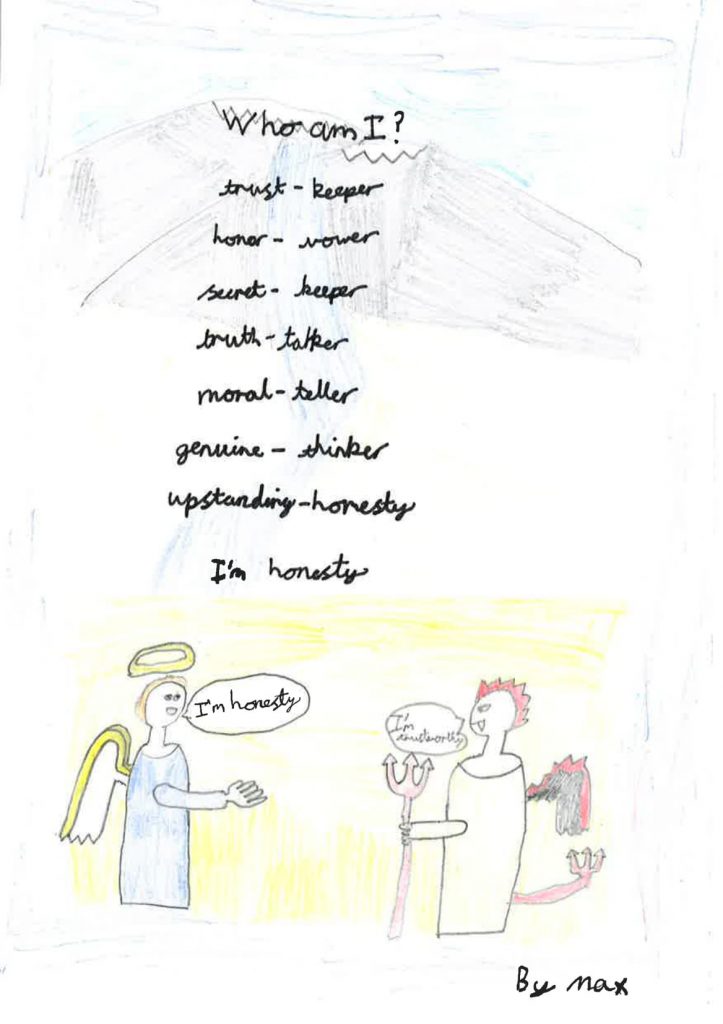 Who am I?
trust - keeper
honor - vower
secret - keeper
truth - talker
moral - teller
genuine - thinker
upstanding - honesty
I'm honesty
I'm honesty
I'm
trustworthy
By max